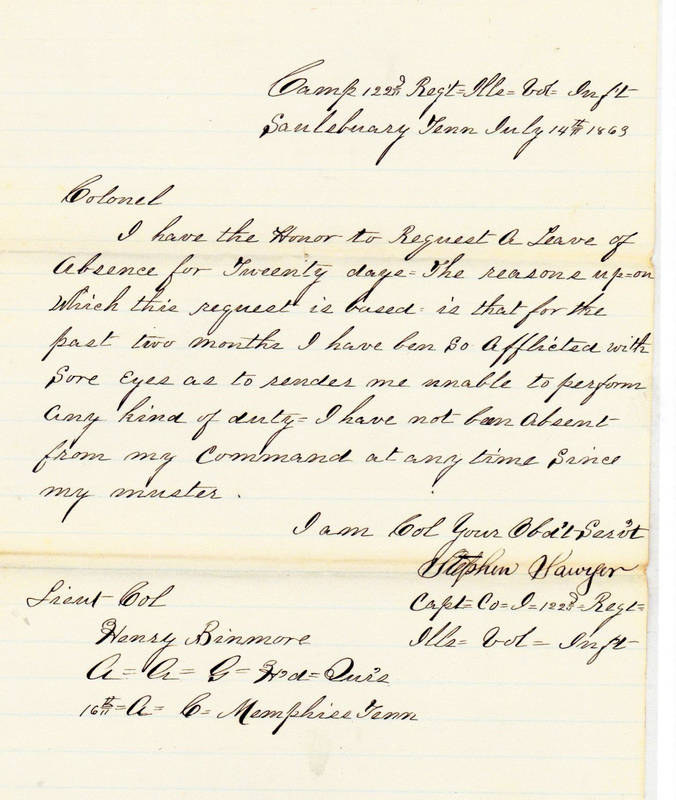 Camp 122d Reg't = Ills = Vol = Inf't
Saulsbuary Tenn July 14th 1863
Colonel
I have the Honor to Request A Leave of
Absence for Tweenty days = The reasons up=on
Which this request is based = is that for the
past two months I have ben So Afflicted with
Sore Eyes as to render me unable to perform
Any kind of duty = I have not ben Absent
from my Command at any time Since
my muster .
I am Col Your Obd't Serv't
Stephen Sawyer
Capt = Co = I = 122d = Regt =
Ills = Vol = Inft
Lieut Col
Henry Binmore
A = A = G = H'd = Qur's
16th = A = C = Memphiss Tenn